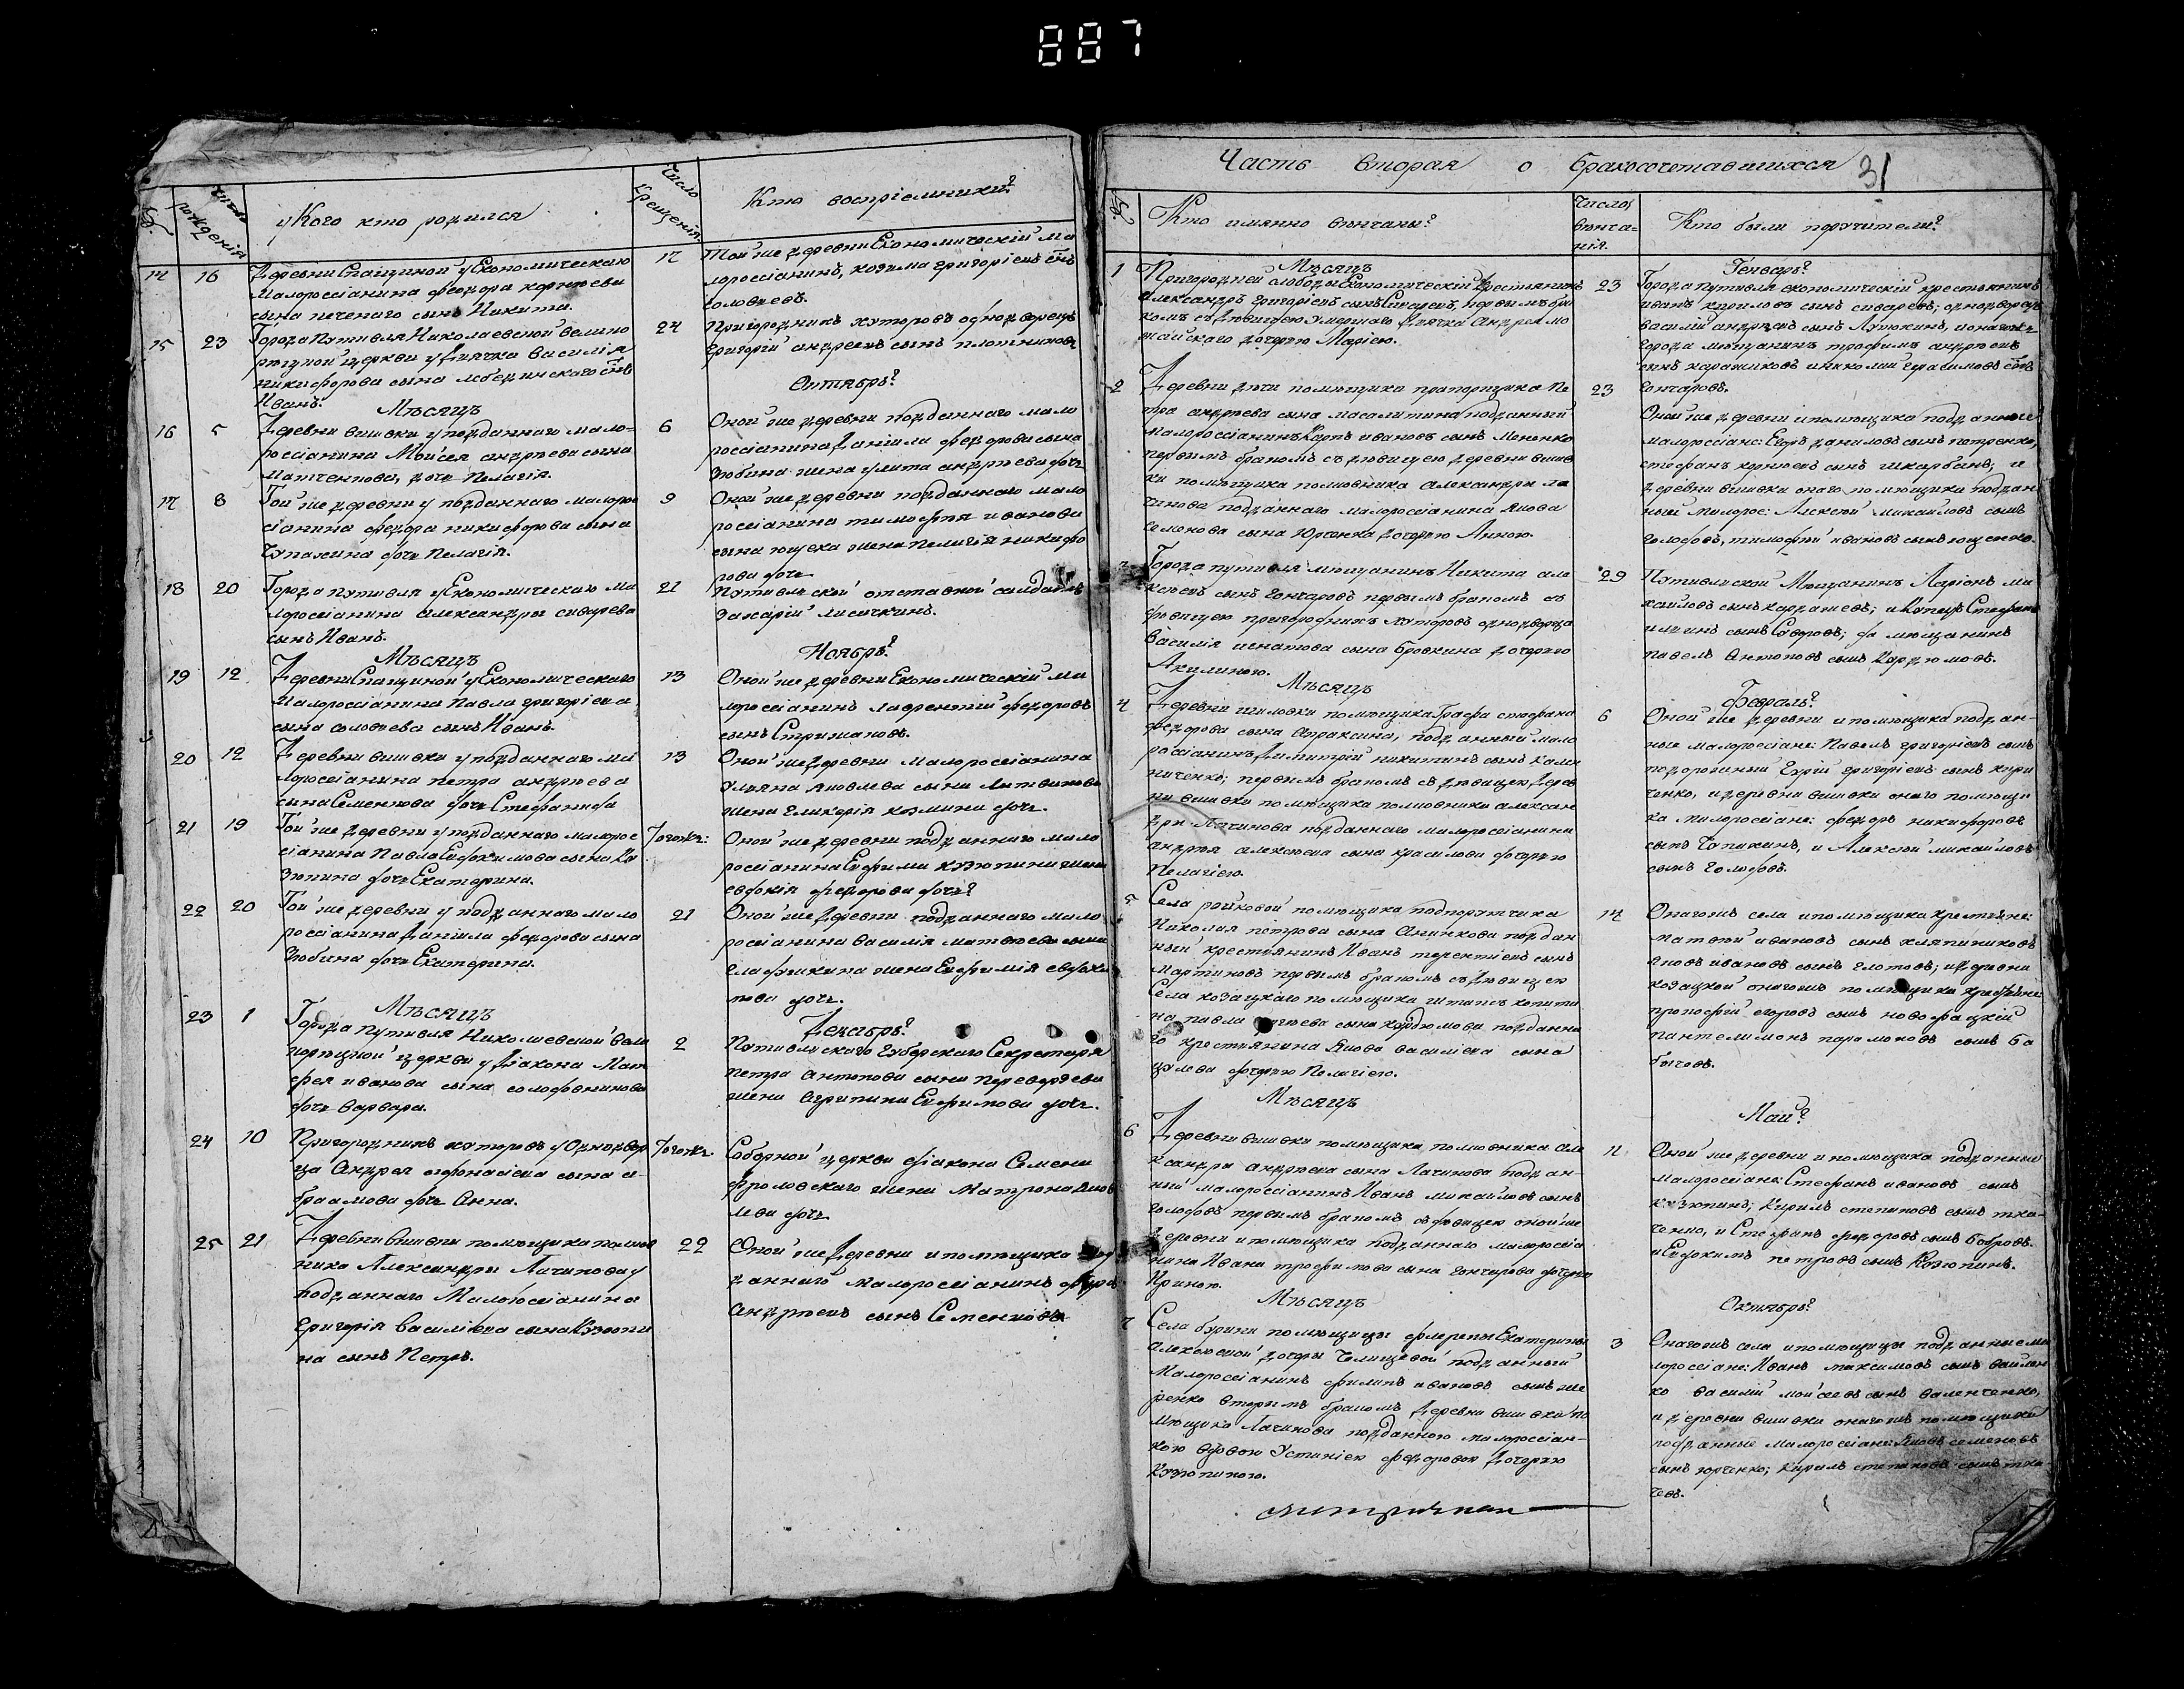 887
№.
число рожденія
у Кого кто родился
число крещенія
Кто воспріемники?
14 16 Деревни Спащиной у Економическаго
Малороссіянина феодора корнѣева
сына печенаго сынъ Никита.
17 Той же деревни Економическій ма
лороссіянинъ, козма григоріевъ сынъ
соловьевъ.
15 23 Города Путивля Николаевской велико
рецкой церкви у Дьячка василія
никифорова сына лебединскаго сынъ
Иванъ.
24 пригородныхъ хуторовъ однодворецъ
григорій андреевъ сынъ плотниковъ
Мѣсяцъ Октябрь?
16 5 Деревни вишевки у подданнаго мало-
россіянина Моисея андрѣева сына
дочь Пелагія.
6 Оной же деревни подданнаго мало
россіянина Даніила федорова сына
Зюбина жена улита андрѣева дочь
17 8 Той же деревни у подданнаго малорос
сіянина федора никифорова сына
Чупахина дочь Пелагія.
9 Оной же деревни подданнаго мало
россіянина тимофея иванова
сына ющека жена Пелагія никифо
рова дочь
18 20 Города путивля у Економическаго ма
лороссіянина александра сиварева
сынъ Иванъ.
21 Путивльской отставной салдатъ
захарій лисичкинъ.
Мѣсяцъ Ноябрь?
19 12 Деревни Спащиной у Економическаго
Малороссіянина Павла григоріева
сына соловьева сынъ Иванъ.
13 Оной же деревни Економическій ма
лороссіянинъ лаврентій федоровъ
сынъ Стрижаковъ.
20 12 Деревни вишевки у подданнаго ма
лороссіянина петра андрѣева
сына Семенкова дочь Стефанида
13 Оной же деревни малороссіянина
Ульяна яковлева сына Литвинова
жена гликерія козмина дочь.
21 19 Той же деревни у подданнаго малорос
сіянина Павла Евфимова сына Ку
зюпина дочь Екатерина.
Тогожъ: Оной же деревни подданнаго мало
россіянина Евфима кузюпина жена
евдокія федорова дочь?
22 20 Той же деревни у подданнаго мало
россіянина Даніила федорова сына
Зюбина дочь Екатерина.
21 Оной же деревни подданнаго мало
россіянина василія матвѣева сына
глафушкина жена Евфимія евдоки
мова дочь.
Мѣсяцъ Декабрь?
23 1 Города путивля Николаевской вели
корецкой церкви у Діакона Мат
фея иванова сына солодовникова
дочь варвара.
2 Путивльскаго Губерскаго Секретаря
петра антонова сына переверзева
жена агрипина Евфимова дочь.
24 10 Пригородныхъ хуторовъ у Однодвор
ца Андрея афонасіева сына а-
браамова дочь Анна.
Тогожъ Соборной церкви діакона Семена
фроловскаго жена Матрона яков
лева дочь
25 21 Деревни вишевки помѣщика полков
ника Александра Лачинова у
подданнаго Малороссіянина
григорія василіева сына Кузюпи
на сынъ Петръ.
22 Оной же деревни и помѣщика под
даннаго малороссіянинъ
андрѣевъ сынъ Семенковъ
Часть вторая о бракосочетавшихся 31
№.
Кто имянно вѣнчаны?
Число вѣнча-
нія.
Кто были поручители?
Мѣсяцъ Генварь?
1 Пригородней слободы Економическій крестьянинъ
александръ григоріевъ сынъ первымъ бра
комъ съ дѣвицею умершаго Дьячка андрея мо
жайскаго дочерью Маріею.
23 Города путивля економическій крестьянинъ
иванъ кириловъ сынъ сиваревъ; однодворецъ
василій андрѣевъ сынъ Лутюкинъ, и оногожъ
города мѣщанинъ трофимъ андрѣевъ
сынъ и николай герасимовъ сынъ
гончаровъ.
2 Деревни помѣщика прапорщика Пе
тра андрѣева сына масалитина подданный
малороссіянинъ Карпъ ивановъ сынъ Мененко
первымъ бракомъ съ дѣвицею деревни вишев
ки помѣщика полковника александра ла
чинова подданнаго малороссіянина якова
семенова сына Юрченка дочерью Анною.
23 Оной же деревни и помѣщика подданные
малороссіане: Егоръ даниловъ сынъ петренко,
стефанъ корнѣевъ сынъ шкарбанъ; и
деревни вишевки онаго помѣщика поддан
ный малорос: Алексѣй михайловъ сынъ
голофовъ, тимофей ивановъ сынъ ющенко.
3 Города путивля мѣщанинъ Никита але
ксѣевъ сынъ гончаровъ первымъ бракомъ съ
дѣвицею пригородныхъ хуторовъ однодворца
василія игнатова сына бровкина дочерью
Акилиною.
29 Путивльской Мѣщанинъ Ларіонъ ми
хайловъ сынъ кардашевъ; и Купецъ Стефанъ
ильинъ сынъ Суворовъ; да мѣщанинъ
павелъ антоновъ сынъ Кардюмовъ.
Мѣсяцъ Февраль?
4 Деревни шиловки помѣщика Графа стефана
федорова сына апраксина, подданный мало
россіянинъ Димитрій никитинъ сынъ кали
ниченко; первымъ бракомъ съ дѣвицею Дерев
ни вишевки помѣщика полковника алексан
дра Лачинова подданнаго малороссіянина
андрея алексѣева сына красилова дочерью
Пелагіею.
6 Оной же деревни и помѣщика поддан-
ные малороссіане: Павелъ григоріевъ сынъ
подорожный Гурій григоріевъ сынъ кири
ченко, и деревни вишевки онаго помѣщи
ка малороссіане: федоръ никифоровъ
сынъ Чупахинъ, и Алексѣй михайловъ
сынъ Голофовъ.
5 Села райковой помѣщика подпорутчика
Николая петрова сына Аничкова поддан
ный крестьянинъ Иванъ терентіевъ сынъ
мартиновъ первымъ бракомъ съ дѣвицею
Села козацкаго помѣщика штапсъ капита
на павла сына кардюмова поддана
го крестьянина якова василіева сына
дочерью Пелагіею.
14 Оногожъ села и помѣщика крестьяне:
матвей ивановъ сынъ хляпниковъ
яковъ ивановъ сынъ глотовъ; и Деревни
козацкой оногожъ помѣщика крестьяне:
прокофій егоровъ сынъ новофацкій
пантелимонъ парамоновъ сынъ ба
бичевъ.
Мѣсяцъ Маи?
6 Деревни вишевки помѣщика полковника але
ксандра андрѣева сына Лачинова поддан-
ный малороссіянинъ Иванъ михайловъ сынъ
голофовъ первымъ бракомъ съ дѣвицею оной же
деревни и помѣщика подданнаго малороссія
нина Ивана трофимова сына гончарова дочерью
Ириною.
11 Оной же деревни и помѣщика подданные
малороссіяне: Стефанъ ивановъ сынъ
кузюпинъ; Кирилъ степановъ сынъ тка-
ченко, и Стефанъ федоровъ сынъ бобровъ.
и Евдокимъ петровъ сынъ Кузюпинъ.
Мѣсяцъ Октябрь?
7 Села бурыни помѣщицы Екатерины
алексѣевой дочери Челищевой подданный
Малороссіянинъ филипъ ивановъ сынъ ше
ренко вторымъ бракомъ Деревни вишевки по
мѣщика Лачинова подданною малороссіан-
кою вдовою Устиніею федоровою дочерью
Кузюпиною.
3 Оногожъ села и помѣщицы подданные ма
лороссіане: Иванъ максимовъ сынъ
ко василій мойсеевъ сынъ валенченко,
и деревни вишевки оногожъ помѣщика
подданные малороссіане: яковъ семеновъ
сынъ юрченко; Кирилъ степановъ сынъ тка-
чевъ.